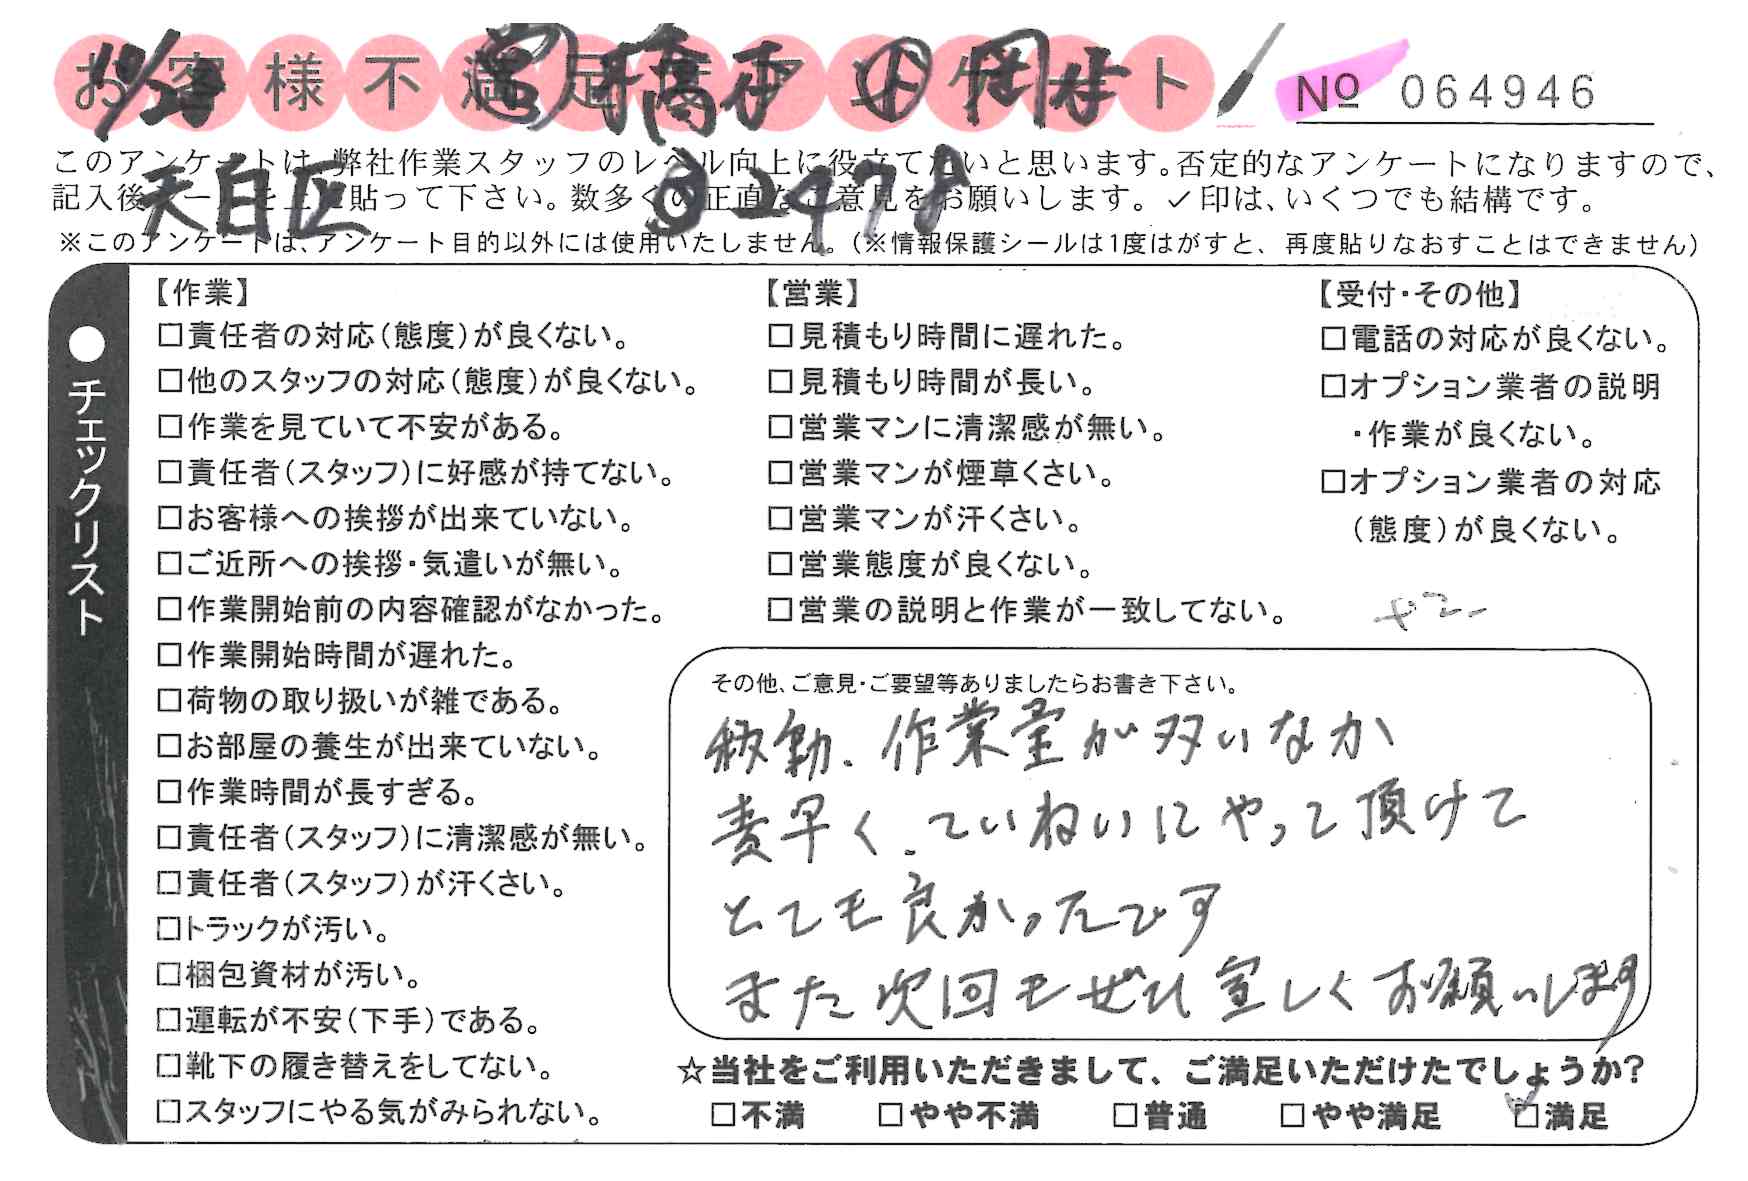 お客様不満足度アンケート
№ 064946
このアンケートは、弊社作業スタッフのレベル向上に役立てたいと思います。否定的なアンケートになりますので、
記入後シールを上に貼って下さい。数多くの正直なご意見をお願いします。✓印は、いくつでも結構です。
天白区
@2478
※このアンケートは、アンケート目的以外には使用いたしません。（※情報保護シールは1度はがすと、再度貼りなおすことはできません）
●チェックリスト
【作業】
□責任者の対応（態度）が良くない。
□他のスタッフの対応（態度）が良くない。
□作業を見ていて不安がある。
□責任者（スタッフ）に好感が持てない。
□お客様への挨拶が出来ていない。
□ご近所への挨拶・気遣いが無い。
□作業開始前の内容確認がなかった。
□作業開始時間が遅れた。
□荷物の取り扱いが雑である。
□お部屋の養生が出来ていない。
□作業時間が長すぎる。
□責任者（スタッフ）に清潔感が無い。
□責任者（スタッフ）が汗くさい。
□トラックが汚い。
□梱包資材が汚い。
□運転が不安（下手）である。
□靴下の履き替えをしてない。
□スタッフにやる気がみられない。
【営業】
□見積もり時間に遅れた。
□見積もり時間が長い。
□営業マンに清潔感が無い。
□営業マンが煙草くさい。
□営業マンが汗くさい。
□営業態度が良くない。
□営業の説明と作業が一致してない。
【受付・その他】
□電話の対応が良くない。
□オプション業者の説明
・作業が良くない。
□オプション業者の対応
（態度）が良くない。
その他、ご意見・ご要望等ありましたらお書き下さい。
移動、作業量が多いなか
素早く、ていねいにやって頂けて
とても良かったです
また次回もぜひ宜しくお願いします
☆当社をご利用いただきまして、ご満足いただけたでしょうか？
□不満 □やや不満 □普通 □やや満足 ☑満足